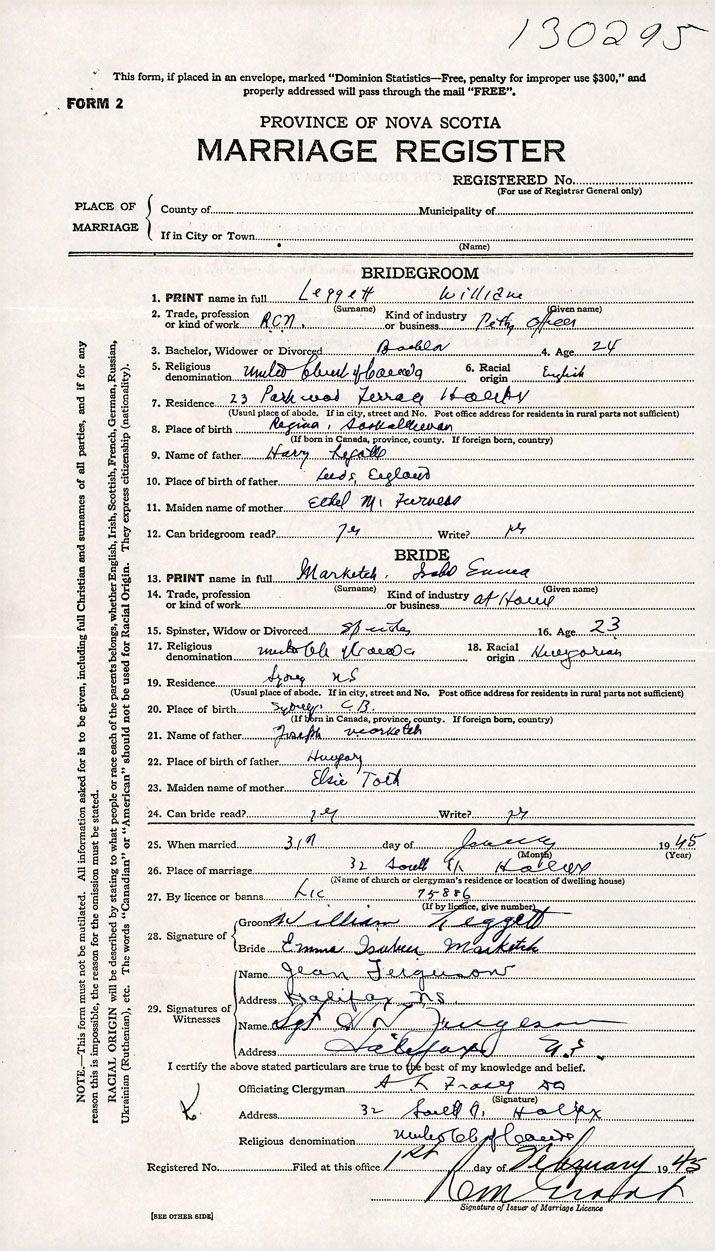 130295
This form, if placed in an envelope, marked "Dominion Statistics—Free, penalty for improper use $300," and
properly addressed will pass through the mail "FREE".
FORM 2
PROVINCE OF NOVA SCOTIA
MARRIAGE REGISTER
REGISTERED No.
(For use of Registrar General only)
PLACE OF MARRIAGE
County of Municipality of
If in City or Town
(Name)
BRIDEGROOM
1. PRINT name in full Leggett William
(Surname) (Given name)
2. Trade, profession or kind of work RCN. Kind of industry or business Petty Officer
3. Bachelor, Widower or Divorced Bachelor 4. Age 24
5. Religious denomination United Church of Canada 6. Racial origin English
7. Residence 23 Parkwood Terrace Halifax
(Usual place of abode. If in city, street and No. Post office address for residents in rural parts not sufficient)
8. Place of birth Regina, Saskatchewan
(If born in Canada, province, county. If foreign born, country)
9. Name of father Harry Leggett
10. Place of birth of father Leeds, England
11. Maiden name of mother Ethel M. Furness
12. Can bridegroom read? yes Write? yes
BRIDE
13. PRINT name in full Marketch, Emma
(Surname) (Given name)
14. Trade, profession or kind of work Kind of industry or business at Home
15. Spinster, Widow or Divorced Spinster 16. Age 23
17. Religious denomination United Ch of Canada 18. Racial origin Hungarian
19. Residence Sydney NS
(Usual place of abode. If in city, street and No. Post office address for residents in rural parts not sufficient)
20. Place of birth Sydney, C.B.
(If born in Canada, province, county. If foreign born, country)
21. Name of father Joseph Marketch
22. Place of birth of father Hungary
23. Maiden name of mother Elsie Toth
24. Can bride read? yes Write? yes
25. When married 31st day of January 1945
(Month) (Year)
26. Place of marriage 32 South St Halifax
(Name of church or clergyman's residence or location of dwelling house)
27. By licence or banns Lic 75886
(If by licence, give number)
28. Signature of
Groom William Leggett
Bride Emma Marketch
29. Signatures of Witnesses
Name Jean Ferguson
Address Halifax N.S.
Name Sgt Ferguson
Address Halifax N.S.
I certify the above stated particulars are true to the best of my knowledge and belief.
Officiating Clergyman Fraser DD
(Signature)
Address 32 South St. Halifax
Religious denomination United Ch of Canada
Registered No. Filed at this office 1st day of February 1945
Signature of Issuer of Marriage Licence
[SEE OTHER SIDE]
NOTE.—This form must not be mutilated. All information asked for is to be given, including full Christian and surnames of all parties, and if for any
reason this is impossible, the reason for the omission must be stated.
RACIAL ORIGIN will be described by stating to what people or race each of the parents belongs, whether English, Irish, Scottish, French, German, Russian,
Ukrainian (Ruthenian), etc. The words "Canadian" or "American" should not be used for Racial Origin. They express citizenship (nationality).